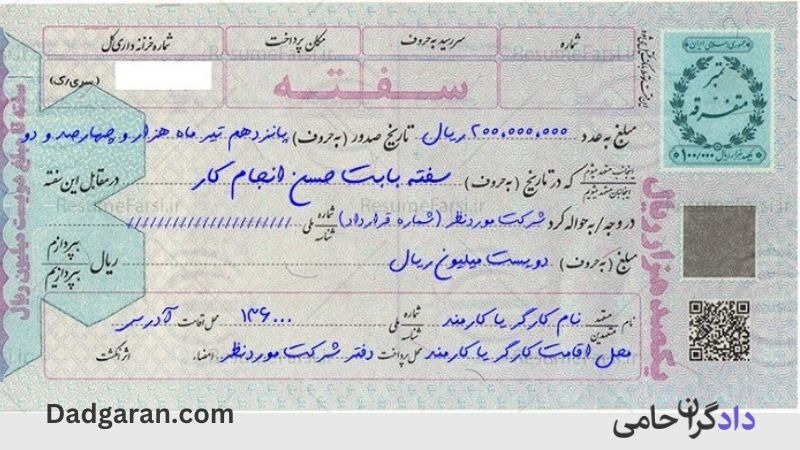 شماره
سررسید به حروف
مکان پرداخت
شماره خزانه داری کل
ResumeFarsi.ir
سفته
(سری/ک)
جمهوری اسلامی ایران
تمبر
متفرقه
۱۰۰/۰۰۰
یکصد هزار ریال
مبلغ به عدد ۲۰۰,۰۰۰,۰۰۰ ریال تاریخ صدور (به حروف) پانزدهم تیر ماه هزار و چهارصد و دو
اینجانب متعهد میشوم
اینجانبان متعهد میشویم
که در تاریخ (به حروف) سفته بابت حسن انجام کار در مقابل این سفته
ResumeFarsi.ir
در وجه / به حواله کرد شرکت مورد نظر (شماره قرارداد) شماره ملی / شناسه //////////////////////
مبلغ (به حروف) دویست میلیون ریال ریال بپردازم
بپردازیم
نام متعهد / متعهدین نام کارگر یا کارمند شماره ملی / شناسه ۱۳۶۰۰۰ محل اقامت آدرس
محل اقامت کارگر یا کارمند محل پرداخت دفتر شرکت مورد نظر امضاء، اثر انگشت
یکصد هزار ریال
سفته تا مبلغ دویست میلیون ریال
Dadgaran.com
دادگران حامی